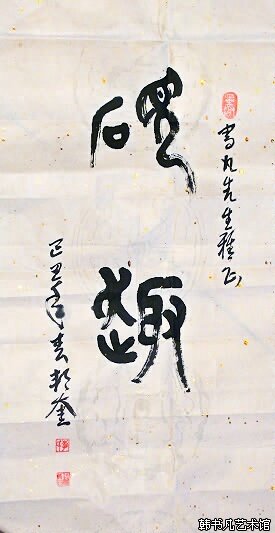 書凡先生雅正
硯趣
己丑年春奎
韩书凡艺术馆